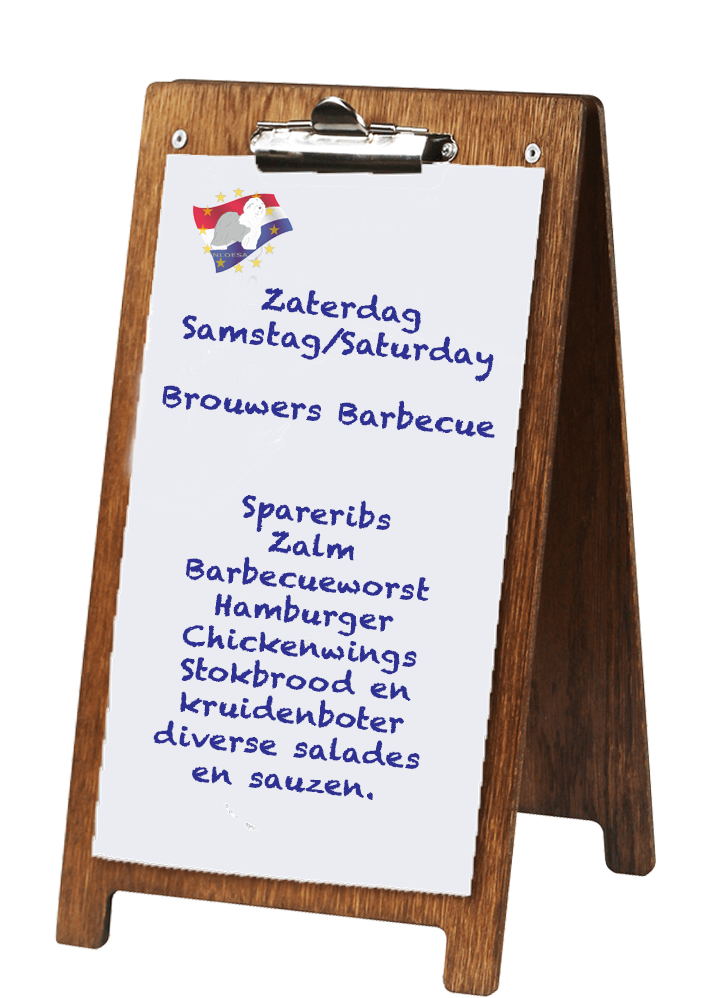 NLOESA
Zaterdag
Samstag/Saturday
Brouwers Barbecue
Spareribs
Zalm
Barbecueworst
Hamburger
Chickenwings
Stokbrood en
kruidenboter
diverse salades
en sauzen.